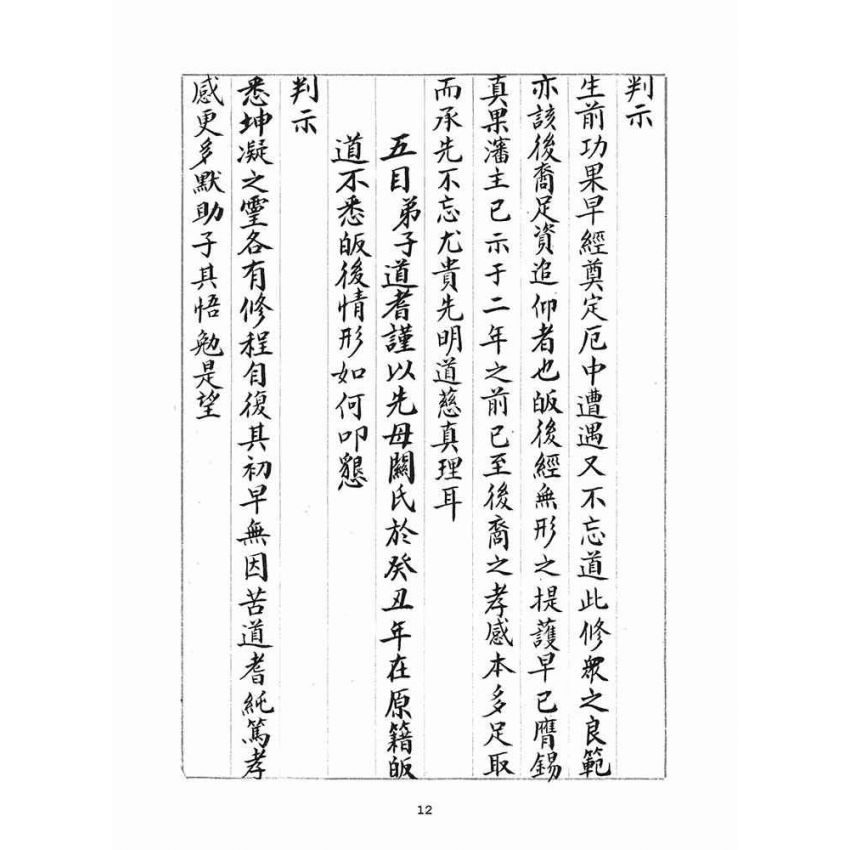 判示
生前功果早經奠定厄中遭遇又不忘道此修衆之良範
亦該後裔足資追仰者也皈後經無形之提護早已膺錫
真果瀋主已示于二年之前已至後裔之孝感本多足取
而承先不忘尤貴先明道慈真理耳
五目弟子道耆謹以先母關氏於癸丑年在原籍皈
道不悉皈後情形如何叩懇
判示
悉坤凝之靈各有修程自復其初早無因苦道耆純篤孝
感更多默助子其悟勉是望
12